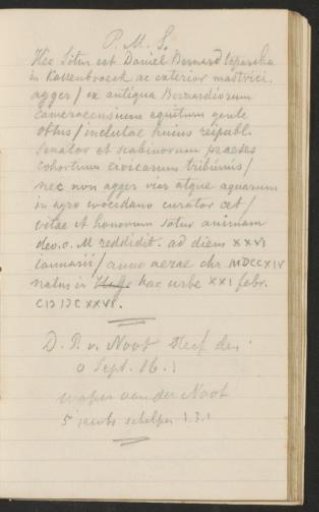 P. M. S.
Hic Situs est Daniel Bernard
in Kattenbroeck ac exterior mastrici
agger / ex antiqua Bernardiorum
cameracensium equitum gente
othis / inclutae huius reipubl.
Senator et scabinorum praeses
cohortum civicarum tribunus /
nec non agger viar atque aquarum
in agro woerdano curator aet /
vitae et honorum satur animam
deo. o. M reddidit. ad diem XXVI
ianuarii / anno aerae chr MDCCXIV
natus in hac urbe XXI febr.
CIƆ IƆC XXVI.
D. P. v. Noot Heef den
0 Sept. 16. 1
wapen van der Noot
5 schelpen 1.3.1